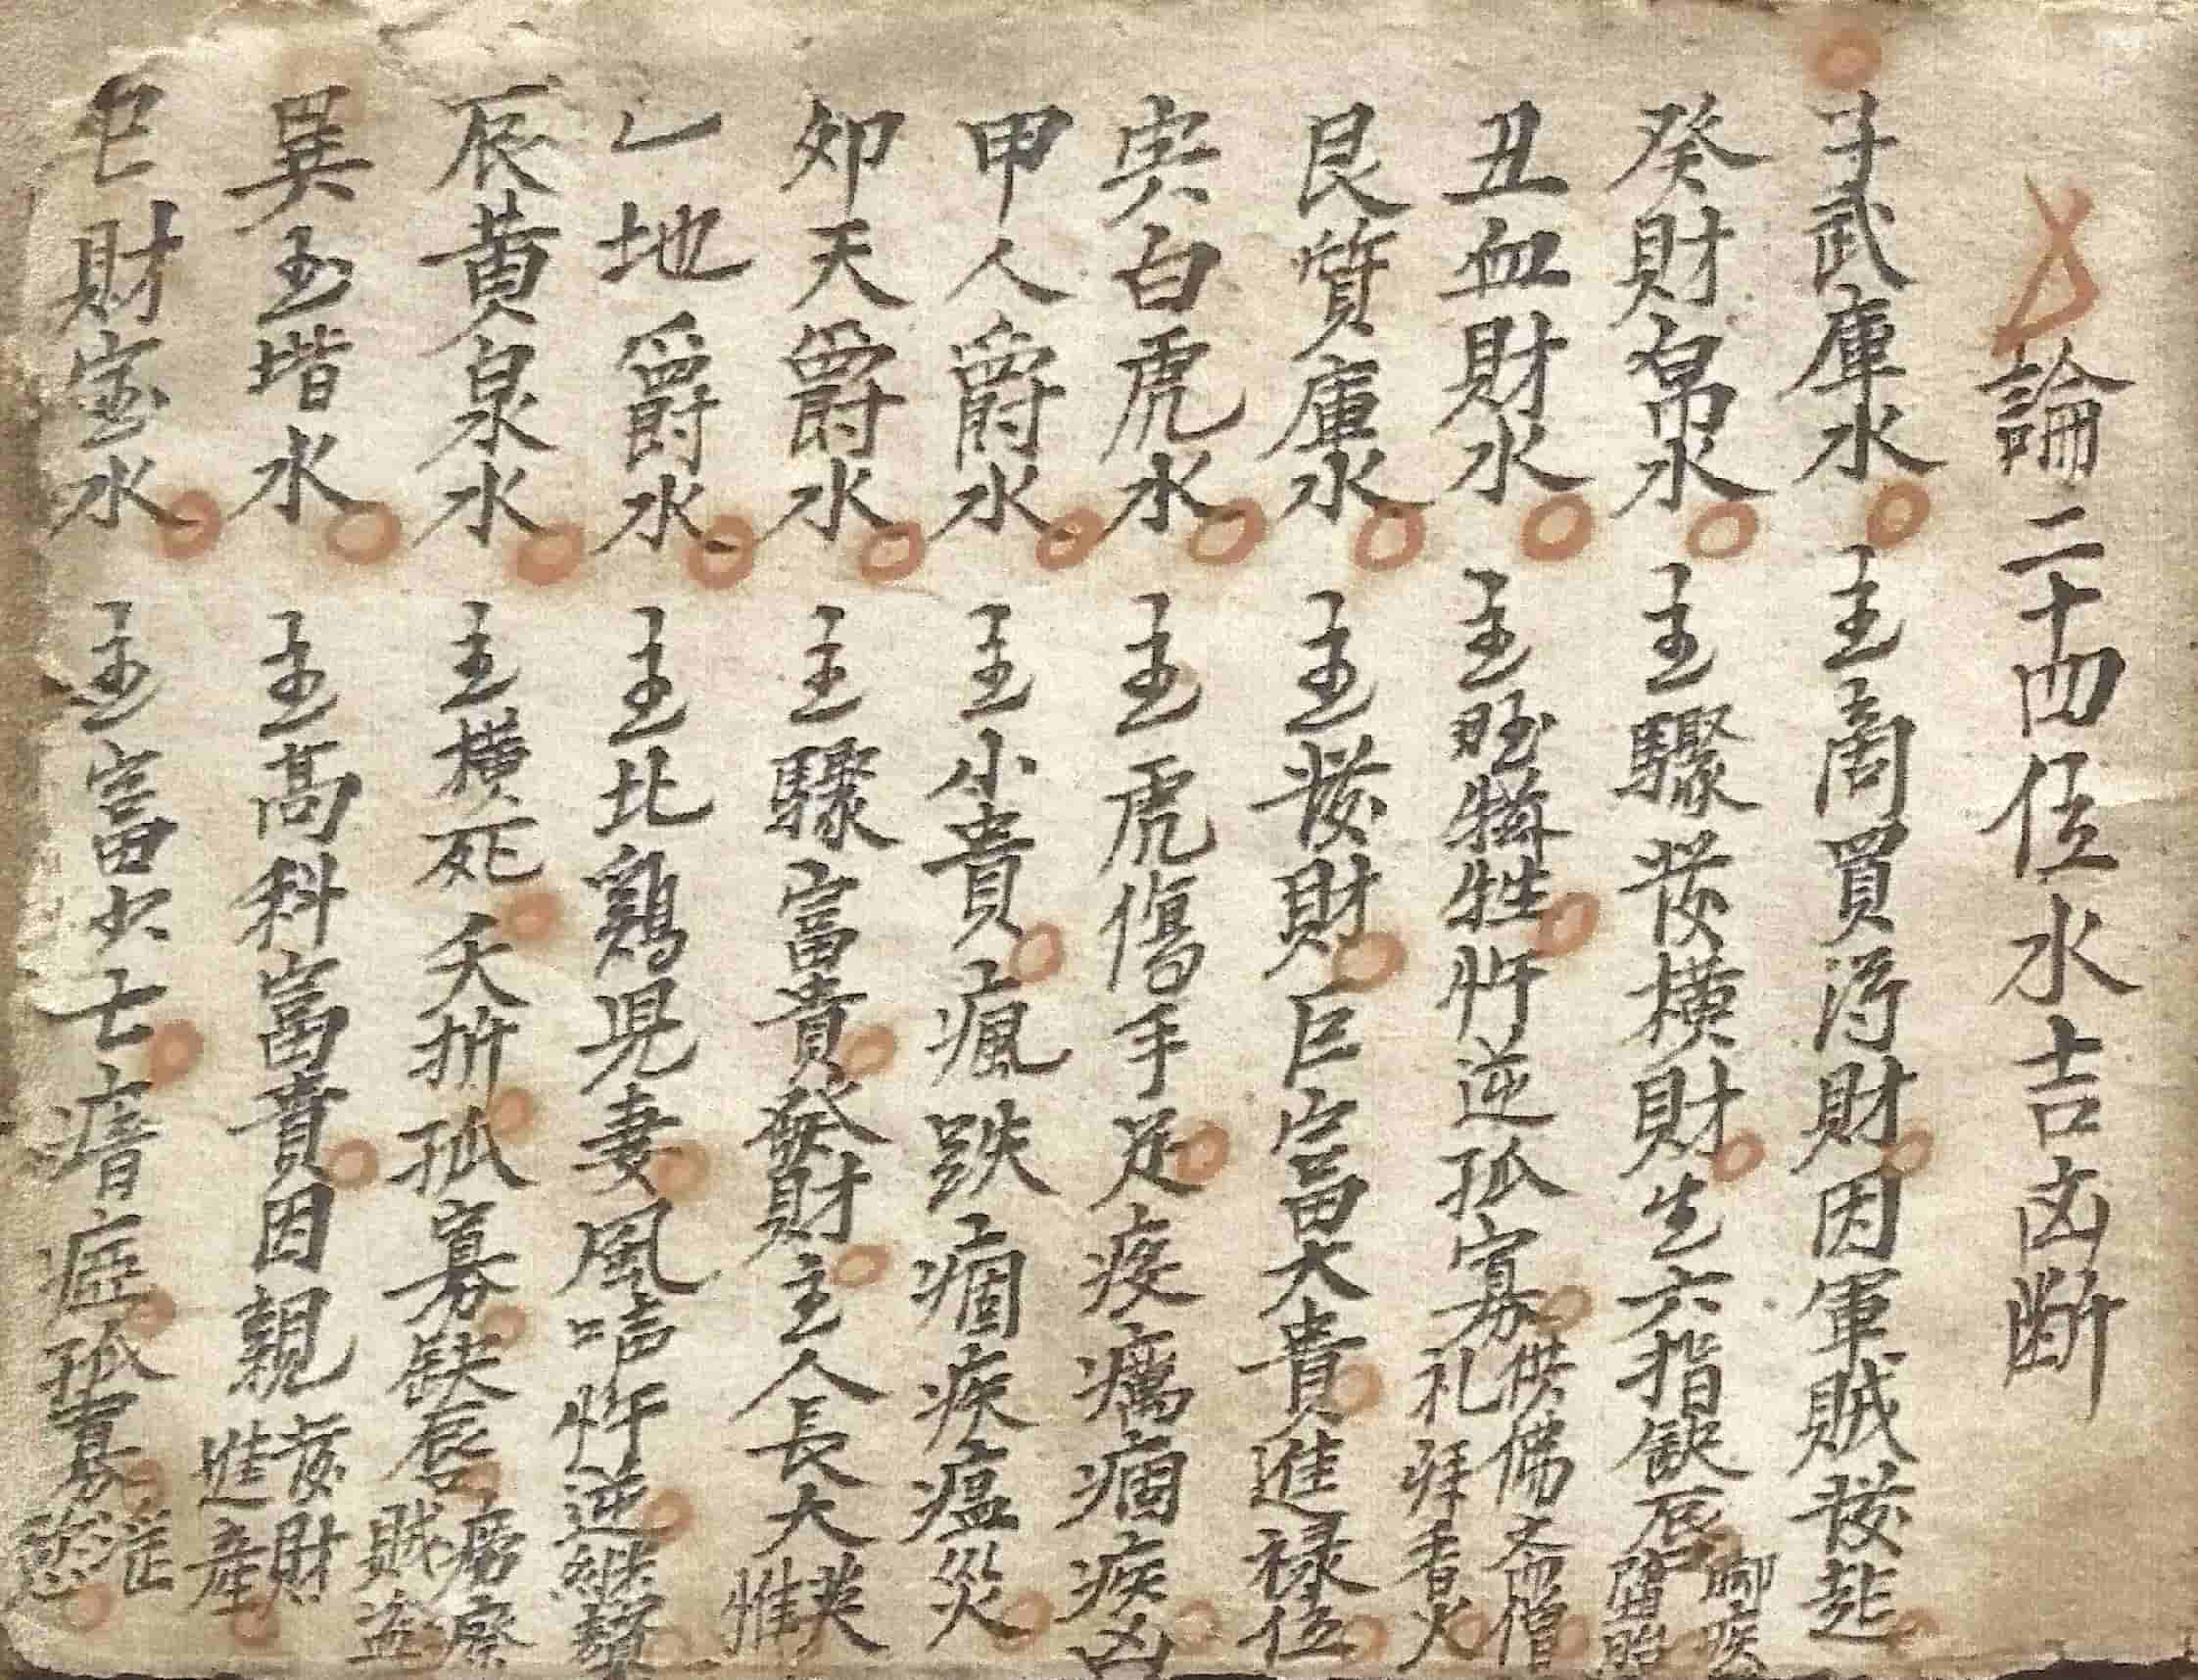 論二十四位水吉凶斷
子武庫水主商買得財因軍賊發起
癸財帛水主驟發橫財生六指缺唇
丑血財水主犧牲忤逆孤寡供佛齋僧礼拜香火
艮質庫水主發財巨富大貴進祿位
寅白虎水主虎傷手足痿癘痼疾凶
甲人爵水主小貴瘋跌痼疾瘟災
卯天爵水主驟富貴發財主人長大英惟
乙地爵水主比鷄児妻風声忤逆継贅
辰黄泉水主橫死夭折孤寡缺唇癆瘵賊盗
巽玉堦水主高科富貴因親發財進産
巳財宝水主富出士瘖瘂孤寡淫慾